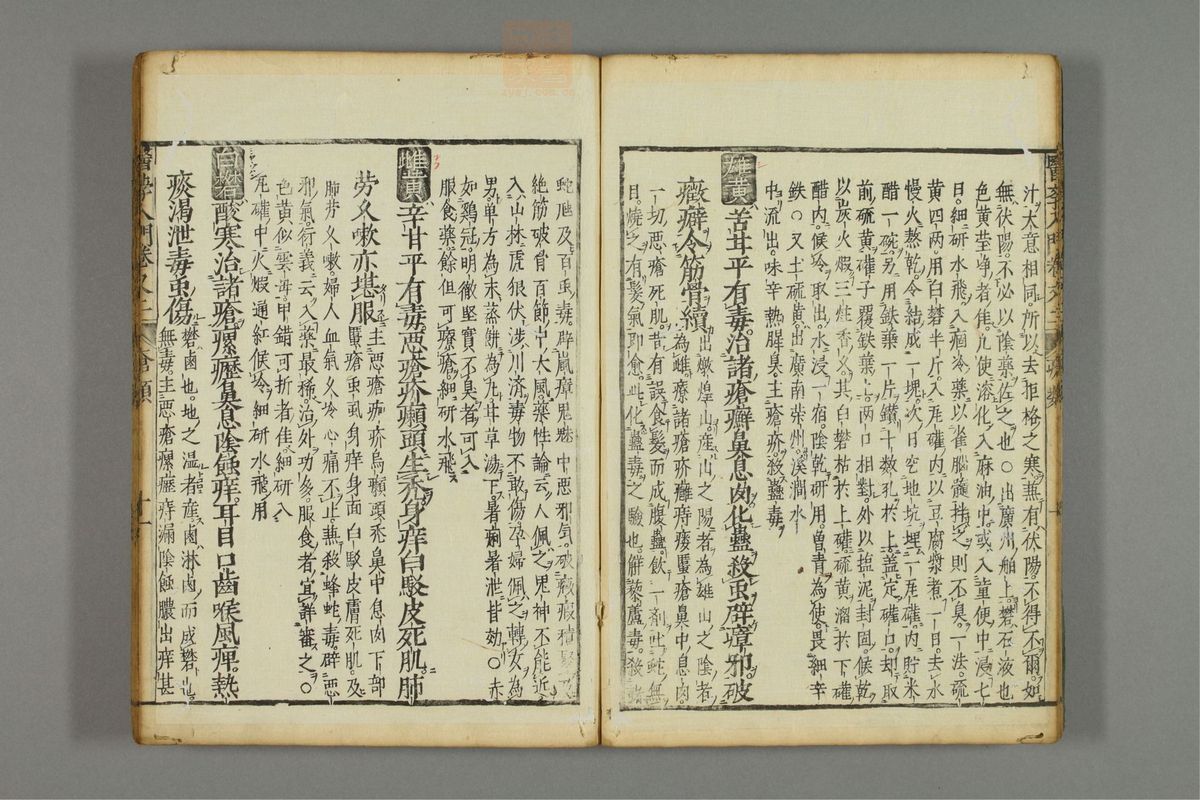 汁大意相同所以去拒格之寒兼有伏陽不得不爾如
無伏陽不必以陰藥佐之也○出廣州舶上礬石液也
色黃瑩淨者佳凡使溶化入麻油中或入童便中浸七
日細研水飛入痼冷藥以雀腦髓拌之則不臭一法硫
黃四兩用白礬半斤入瓦礶內以豆腐漿煮一日去水
慢火熬乾令結成一塊次日空地坑埋一瓦礶內貯米
醋一碗另用鉄葉一片鑽十數孔於上盖定礶口却取
前硫黃礶子覆鉄葉上兩口相對外以塩泥封固候乾
以炭火煆三炷香久其白礬枯於上礶硫黃溜於下礶
醋內候冷取出水浸一宿陰乾研用曾青為使畏細辛
鉄○又土硫黃出廣南柴州溪澗水
中流出味辛熱腥臭主瘡疥殺蠱毒
雄黃 苦甘平有毒治諸瘡癬鼻息肉化蠱殺虫辟瘴邪破
癥癖令筋骨續 出燉煌山産山之陽者為雄山之陰者
為雌療諸瘡疥癰痔瘻䘌瘡鼻中息肉
一切惡瘡死肌昔有誤食髮而成腹蠱飲一剤吐蛇無
目燒之有髮氣即愈此化蠱毒之驗也解藜蘆毒殺
蛇虺及百虫毒辟嵐瘴鬼魅中惡邪気破癥瘕積聚
絶筋破骨百節中大風藥性論云人佩之鬼神不能近
入山林虎狼伏渉川済毒物不敢傷孕婦佩之轉女為
男單方為末蒸餅為丸甘草湯下暑痢暑泄皆効○赤
如鷄冠明徹堅實不臭者可入
服食藥餘但可療瘡細研水飛
雌黃 辛甘平有毒惡瘡疥癩頭生禿身痒白駁皮死肌肺
勞久嗽亦堪服 主惡瘡痂疥烏癩頭禿鼻中息肉下部
䘌瘡虫虱身痒身面白駁皮膚死肌及
肺勞久嗽婦人血氣久冷心痛不止兼殺蜂蛇毒辟惡
邪氣衍義云入藥最稀治外功多服食者宜詳審之○
色黃似雲母甲錯可折者佳細研入
瓦礶中火煆通紅候冷細研水飛用
白礬 酸寒治諸瘡瘰癧鼻息陰蝕痒耳目口齒喉風痺熱
痰渴泄毒虫傷 礬鹵也地之温者産鹵淋鹵而成礬也
無毒主惡瘡瘰癧痔漏陰蝕膿出痒甚